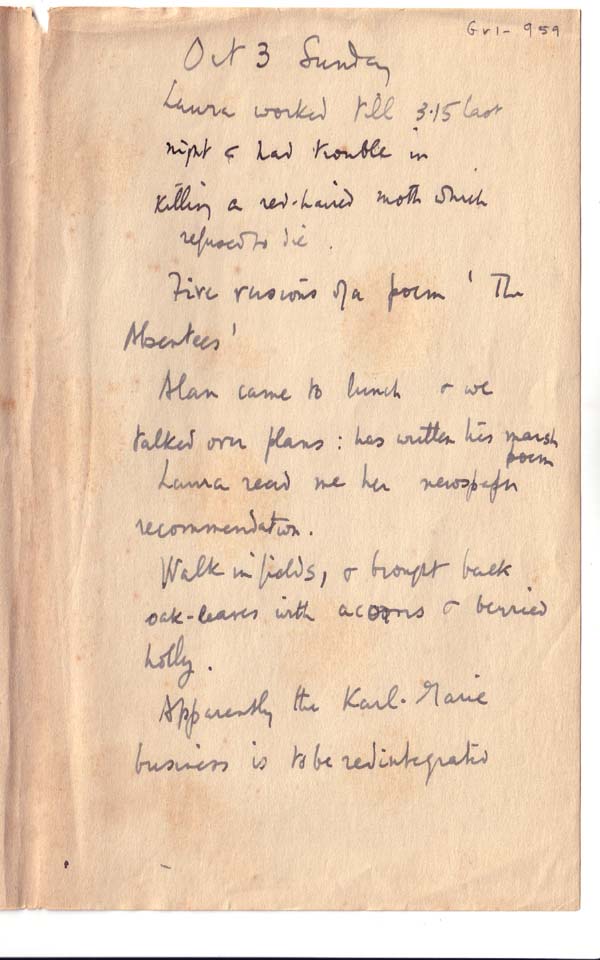 Gv1- 959
Oct 3 Sunday
Laura worked till 3.15 last
night & had trouble in
killing a red-haired moth which
refused to die.
Five versions of a poem 'The
Absentees'
Alan came to lunch & we
talked over plans: has written his marsh
poem
Laura read me her newspaper
recommendation.
Walk in fields, & brought back
oak-leaves with acorns & berried
holly.
Apparently the Karl-Marie
business is to be redintegrated